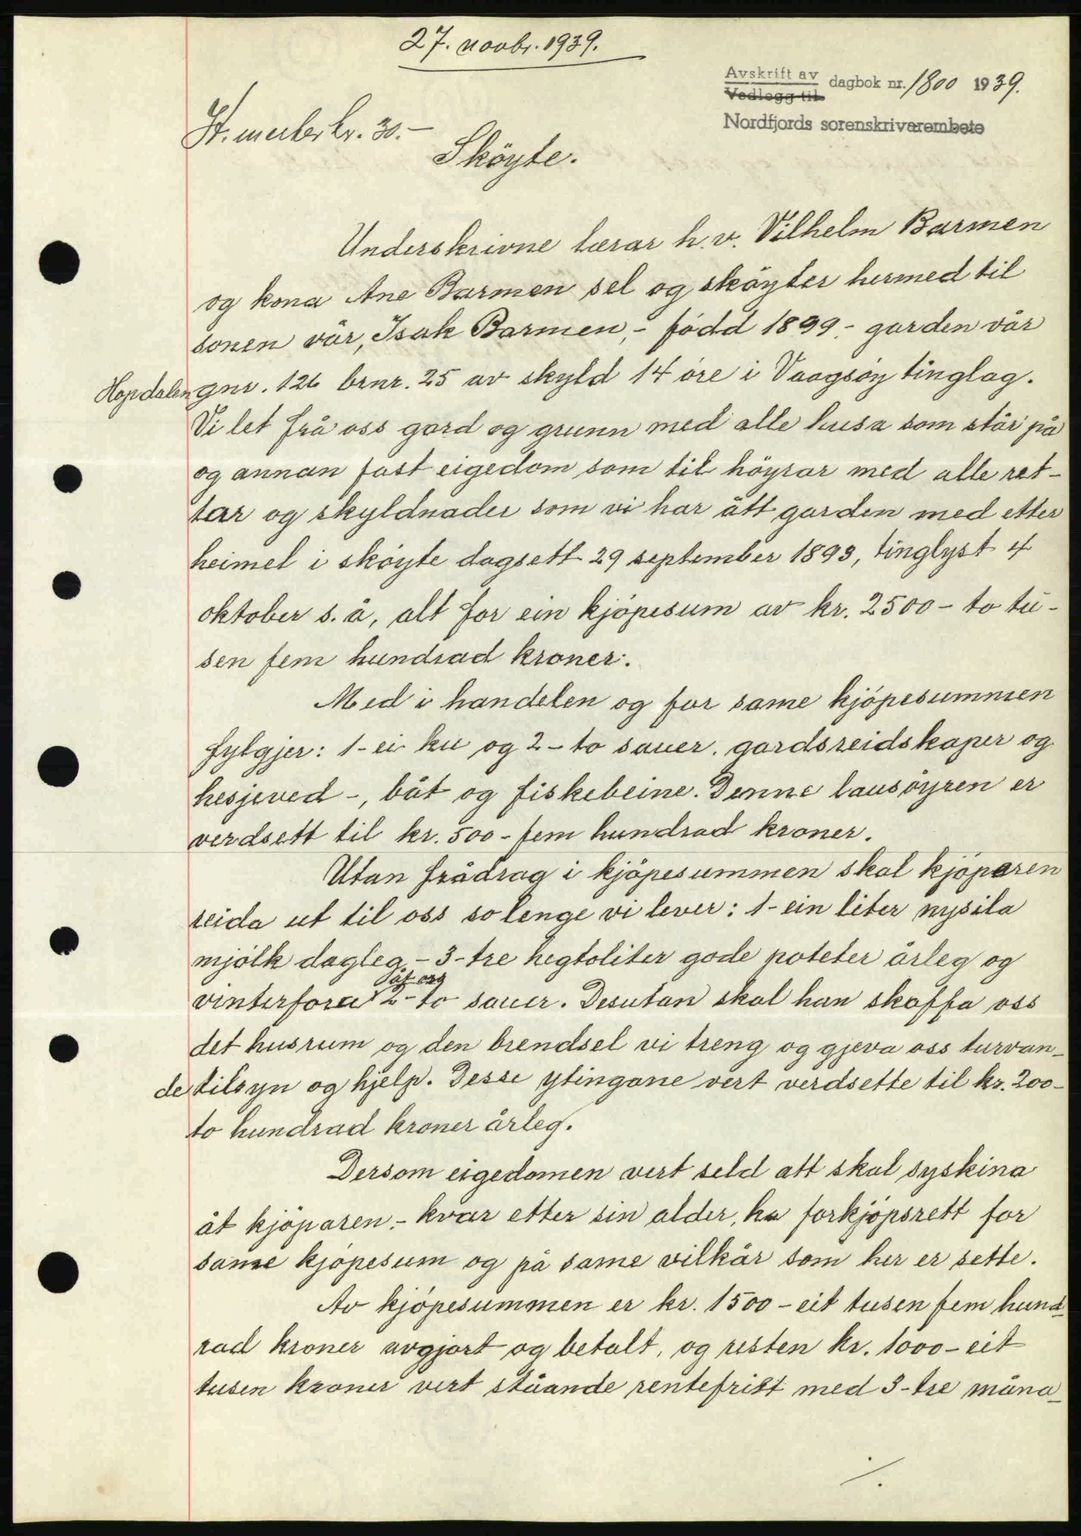 27. novbr. 1939.
Avskrift av
Vedlegg til dagbok nr. 1800 1939.
Nordfjords sorenskrivarembete
St. merker kr. 30.-
Sköyte.
Underskrivne lærar h.v. Vilhelm Barmen
og kona Ane Barmen sel og sköyter hermed til
sonen vår, Isak Barmen,- född 1899.- garden vår
Hopdalen gnr. 126 brnr. 25 av skyld 14 öre i Vaagsöy tinglag.
Vi let frå oss gard og grunn med alle husa som står på
og annan fast eigedom som til höyrar med alle ret-
tar og skyldnader som vi har ått garden med etter
heimel i sköyte dagsett 29 september 1893, tinglyst 4
oktober s.å, alt for ein kjöpesum av kr. 2500- to tu-
sen fem hundrad kroner.
Med i handelen og for same kjöpesummen
fylgjer: 1- ei ku og 2- to sauer. gardsreidskaper og
hesjeved -, båt og fiskebeine. Denne lausöyren er
verdsett til kr. 500- fem hundrad kroner.
Utan frådrag i kjöpesummen skal kjöparen
reida ut til oss so lenge vi lever: 1- ein liter nysila
mjölk dagleg - 3- tre hegtoliter gode poteter årleg og
åt oss
vinterfora 2- to sauer. Desutan skal han skaffa oss
det husrum og den brendsel vi treng og gjeva oss turvan-
de tilsyn og hjelp. Desse ytingane vert verdsette til kr. 200-
to hundrad kroner årleg.
Dersom eigedomen vert seld att skal syskina
åt kjöparen.- kvar etter sin alder, ha forkjöpsrett for
same kjöpesum og på same vilkår som her er sette.
Av kjöpesummen er kr. 1500- eit tusen fem hund-
rad kroner avgjort og betalt, og resten kr. 1000- eit
tusen kroner vert ståande rentefritt med 3- tre måna-
./.